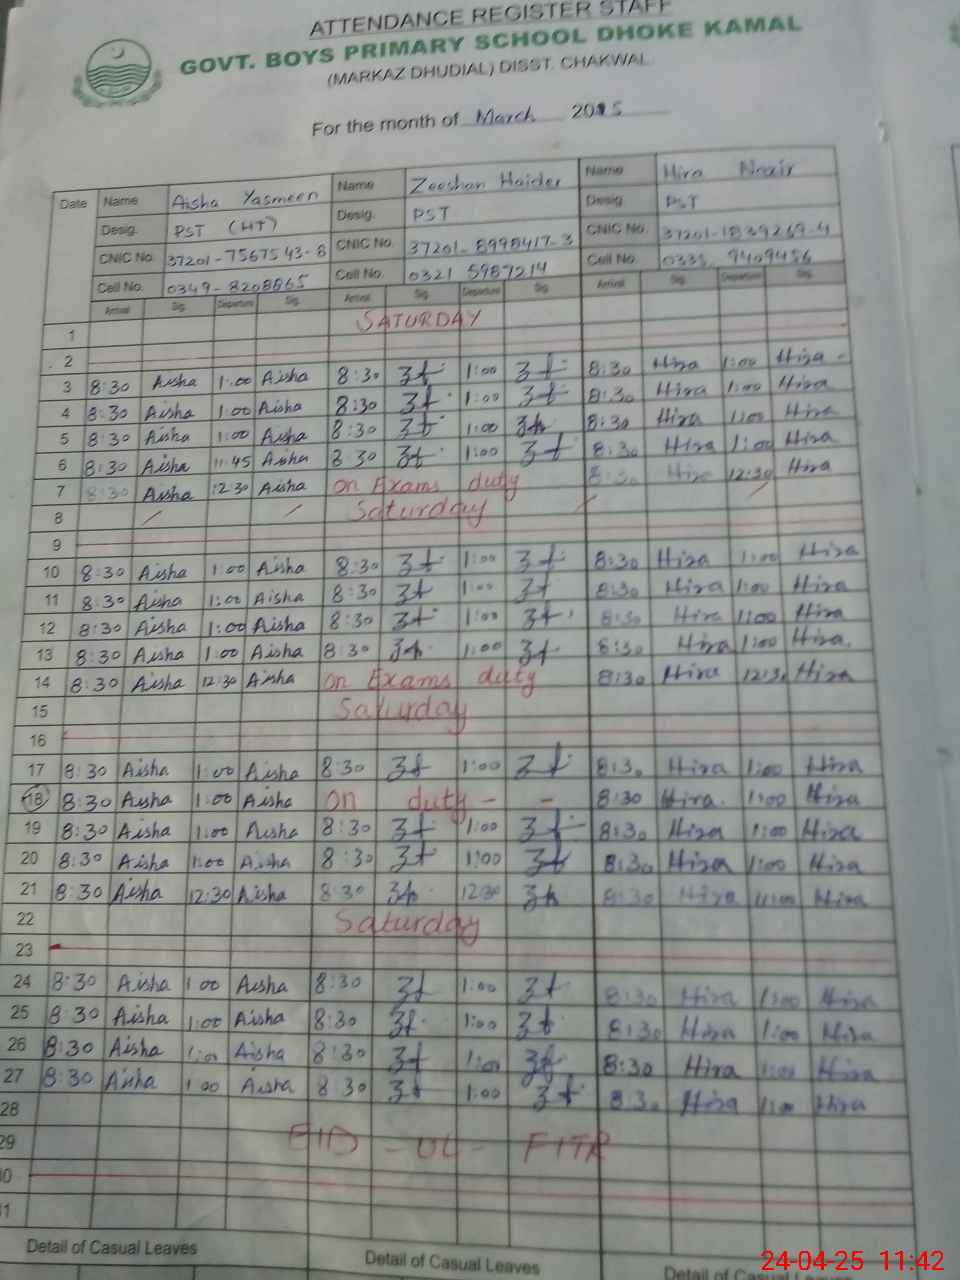 ATTENDANCE REGISTER STAFF
GOVT. BOYS PRIMARY SCHOOL DHOKE KAMAL
(MARKAZ DHUDIAL) DISST. CHAKWAL
For the month of March 2015
Date Name Aisha Yasmeen Name Zeeshan Haider Name Hira
Desig. PST (HT) Desig. PST Desig. PST
CNIC No. 37201-7567543-8 CNIC No. 37201-8998417-3 CNIC No. 37201-1839269-4
Cell No. 0349-8208865 Cell No. 0321 5987214 Cell No. 0333 9409456
Arrival Sig. Departure Sig. Arrival Sig. Departure Sig. Arrival Sig. Departure Sig.
1 SATURDAY
2
3 8:30 Aisha 1:00 Aisha 8:30 1:00 8:30 Hira 1:00 Hira
4 8:30 Aisha 1:00 Aisha 8:30 1:00 8:30 Hira 1:00 Hira
5 8:30 Aisha 1:00 Aisha 8:30 1:00 8:30 Hira 1:00 Hira
6 8:30 Aisha 11:45 Aisha 8 30 1:00 8:30 Hira 1:00 Hira
7 8:30 Aisha 12:30 Aisha on Exams duty 8:30 Hira 12:30 Hira
8 Saturday
9
10 8:30 Aisha 1:00 Aisha 8:30 1:00 8:30 Hira 1:00 Hira
11 8:30 Aisha 1:00 Aisha 8:30 1:00 8:30 Hira 1:00 Hira
12 8:30 Aisha 1:00 Aisha 8:30 1:00 8:30 Hira 1:00 Hira
13 8:30 Aisha 1:00 Aisha 8:30 1:00 8:30 Hira 1:00 Hira.
14 8:30 Aisha 12:30 Aisha on Exams duty 8:30 Hira 12:30 Hira
15 Saturday
16
17 8:30 Aisha 1:00 Aisha 8:30 1:00 8:30 Hira 1:00 Hira
18 8:30 Aisha 1:00 Aisha on duty - - 8:30 Hira. 1:00 Hira
19 8:30 Aisha 1:00 Aisha 8:30 1:00 8:30 Hira 1:00 Hira
20 8:30 Aisha 1:00 Aisha 8:30 1:00 8:30 Hira 1:00 Hira
21 8:30 Aisha 12:30 Aisha 8 30 12:30 8:30 Hira Hira
22 Saturday
23
24 8:30 Aisha 1 00 Aisha 8:30 1:00 8:30 Hira 1:00 Hira
25 8 30 Aisha 1:00 Aisha 8:30 1:00 8:30 Hira 1:00 Hira
26 8:30 Aisha 1:00 Aisha 8:30 1:00 8:30 Hira 1:00 Hira
27 8:30 Aisha 1 00 Aisha 8 30 1:00 8:30 Hira 1:00 Hira
28
29 EID - UL - FITR
0
1
Detail of Casual Leaves Detail of Casual Leaves Detail of Casual Leaves
24-04-25 11:42